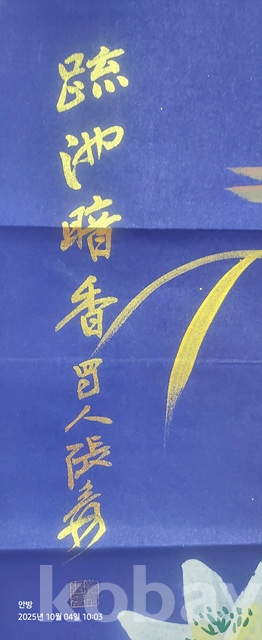 疏池暗香 蜀人張爰
kobay
안방
2025년 10월 04일 10:03